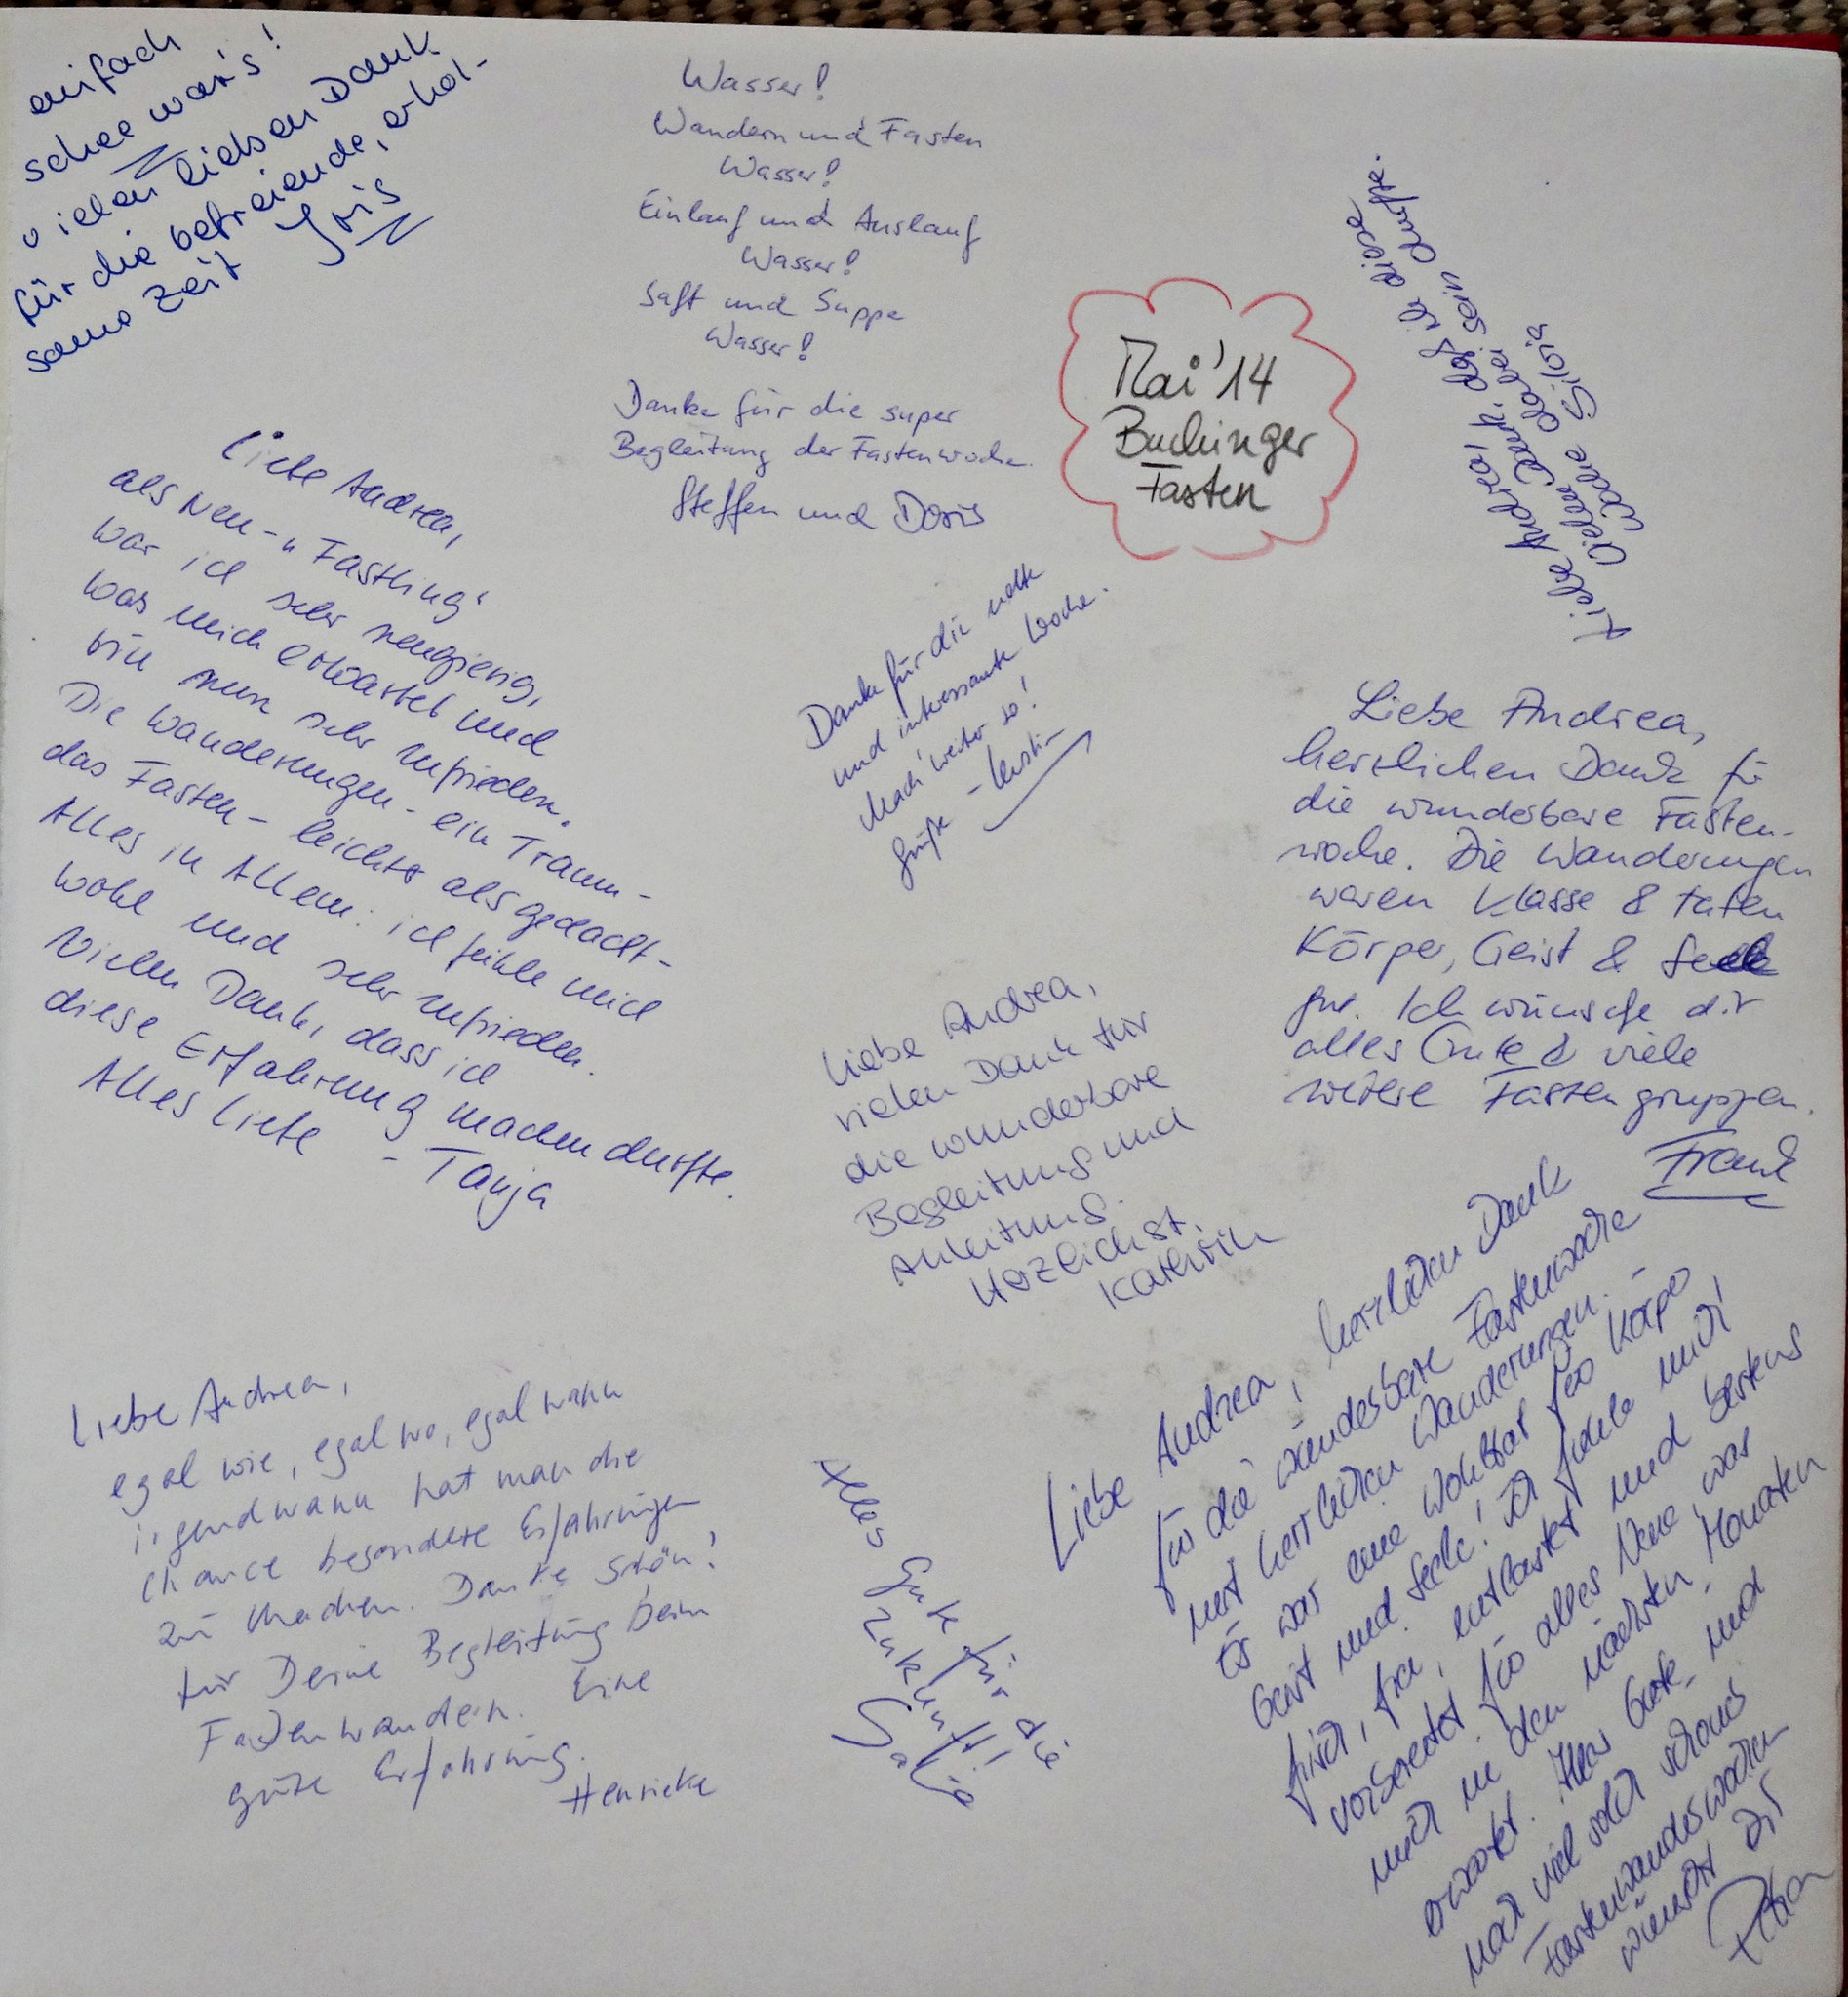 einfach
schee war's!
vielen lieben Dank
für die befreiende, erhol-
same Zeit Iris
Wasser!
Wandern und Fasten
Wasser!
Einlauf und Auslauf
Wasser!
Saft und Suppe
Wasser!
Danke für die super
Begleitung der Fastenwoche.
Steffen und Doris
Mai '14
Buchinger
Fasten
Liebe Andrea,
vielen Dank, daß ich diese
Woche dabei sein durfte.
Silvia
Liebe Andrea,
als Neu-„Fastling"
war ich sehr neugierig,
was mich erwartet und
bin nun sehr zufrieden.
Die Wanderungen - ein Traum -
das Fasten - leichter als gedacht -
Alles in Allem: ich fühle mich
wohl und sehr zufrieden.
Vielen Dank, dass ich
diese Erfahrung machen durfte.
Alles Liebe - Tanja
Danke für die nette
und interessante Woche.
Mach' weiter so!
Grüße -
Liebe Andrea,
herzlichen Dank für
die wunderbare Fasten-
woche. Die Wanderungen
waren Klasse & taten
Körper, Geist & Seele
gut. Ich wünsche dir
alles Gute & viele
weitere Fastengruppen.
Frank
Liebe Andrea,
vielen Dank für
die wunderbare
Begleitung und
Anleitung.
Herzlichst,
Kathrin
Liebe Andrea,
egal wie, egal wo, egal wann
irgendwann hat man die
Chance besondere Erfahrungen
zu machen. Danke schön!
für Deine Begleitung beim
Fastenwandern. Eine
gute Erfahrung.
Henrieke
Alles Gute für die
Zukunft!
Liebe Andrea, herzlichen Dank
für die wunderbare Fastenwoche
mit herrlichen Wanderungen.
Es war eine Wohltat für Körper
Geist und Seele! Ich fühle mich
frisch, frei, entlastet und bestens
vorbereitet für alles Neue, was
mich in den nächsten Monaten
erwartet. Alles Gute und
noch viel solch schöne
Fastenwanderwochen
wünscht Dir
Petra